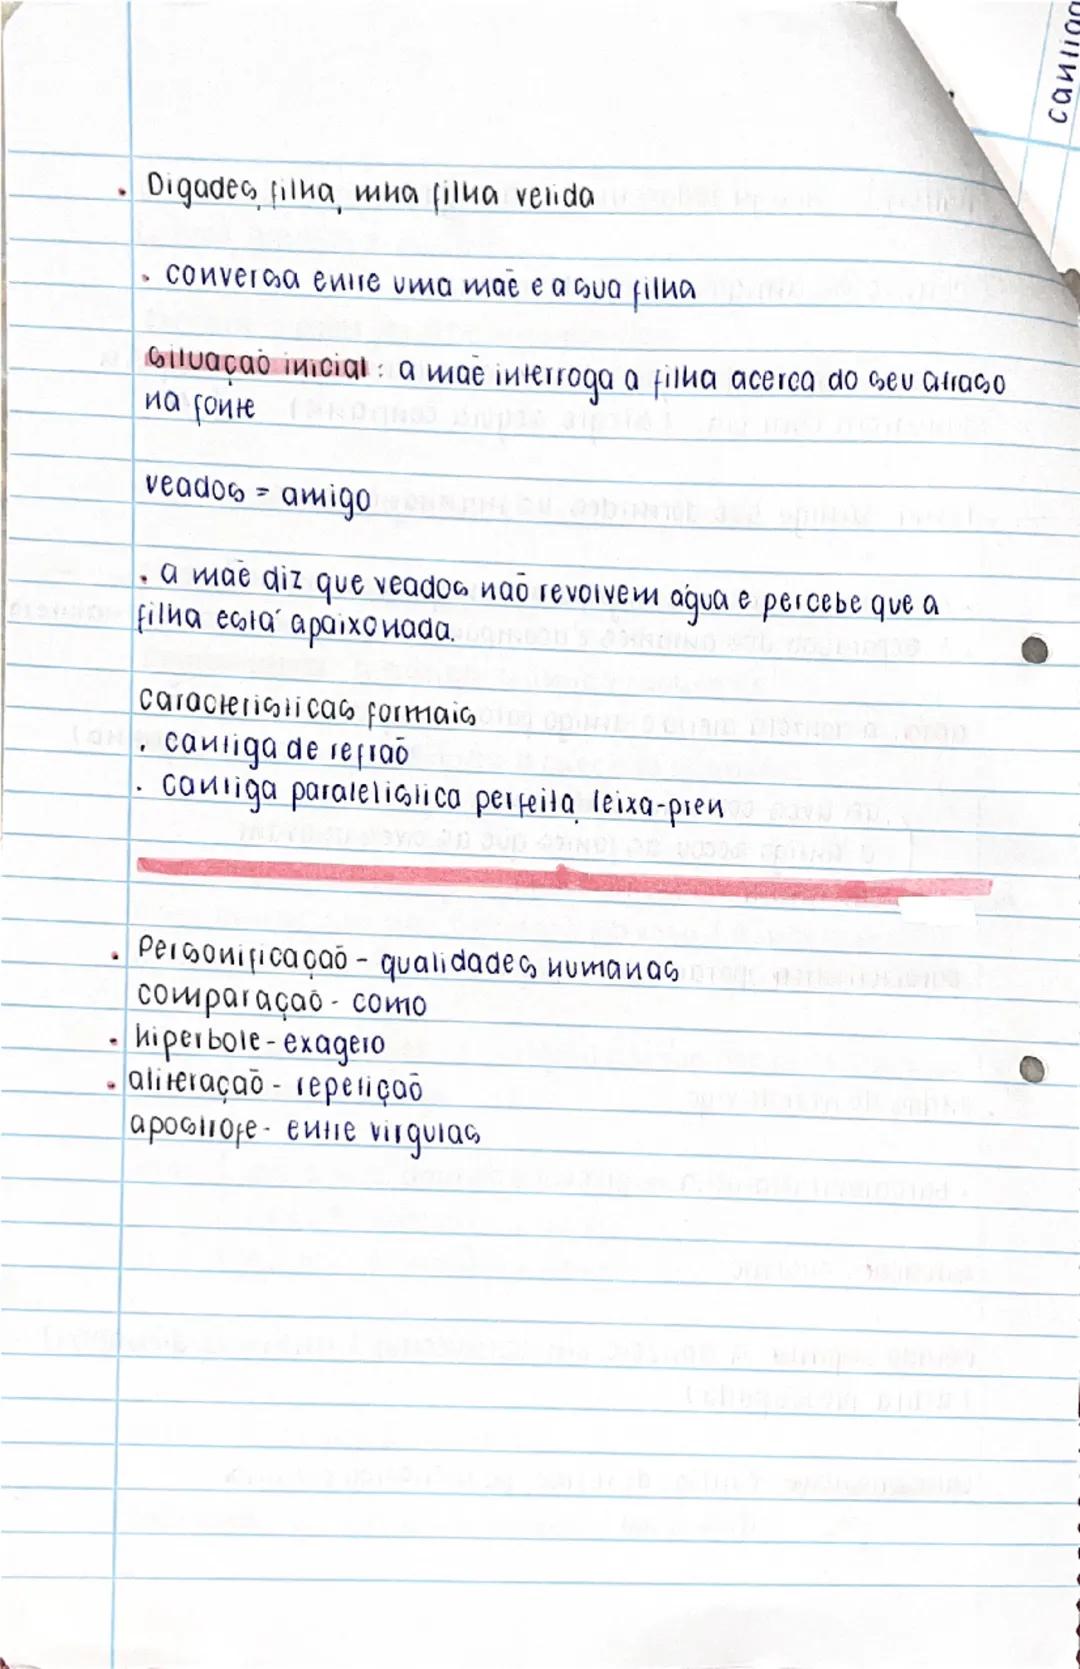 . Digades, filha, mha filha velida
. conversa entre uma mãe e a sua filha
situação inicial : a mãe interroga a filha acerca do seu atraso
na fonte
veados = amigo
. a mãe diz que veados não revolvem água e percebe que a
filha está apaixonada.
caracteristicas formais
. cantiga de refrão
. cantiga paralelistica perfeita, leixa-pren
. Personificação - qualidades humanas
comparação - como
. hiperbole - exagero
. aliteração - repetição
apostrofe - entre virgulas